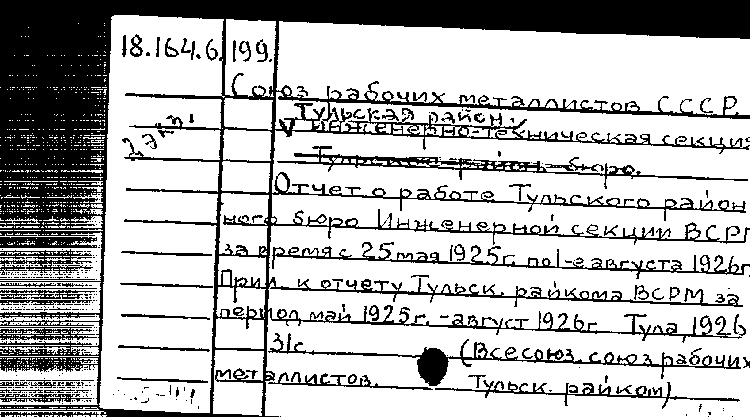 18.164.6. 199.
Союз рабочих металлистов С.С.С.Р.
Тульская район.
2 экз. V инженерно-техническая секция
Тульское район. бюро.
Отчет о работе Тульского район
ного бюро Инженерной секции ВСРМ
за время с 25 мая 1925г. по 1-е августа 1926г.
Прил. к отчету Тульск. райкома ВСРМ за
период май 1925г. - август 1926г. Тула, 1926
31с. (Всесоюз. союз рабочих
металлистов. Тульск. райком)